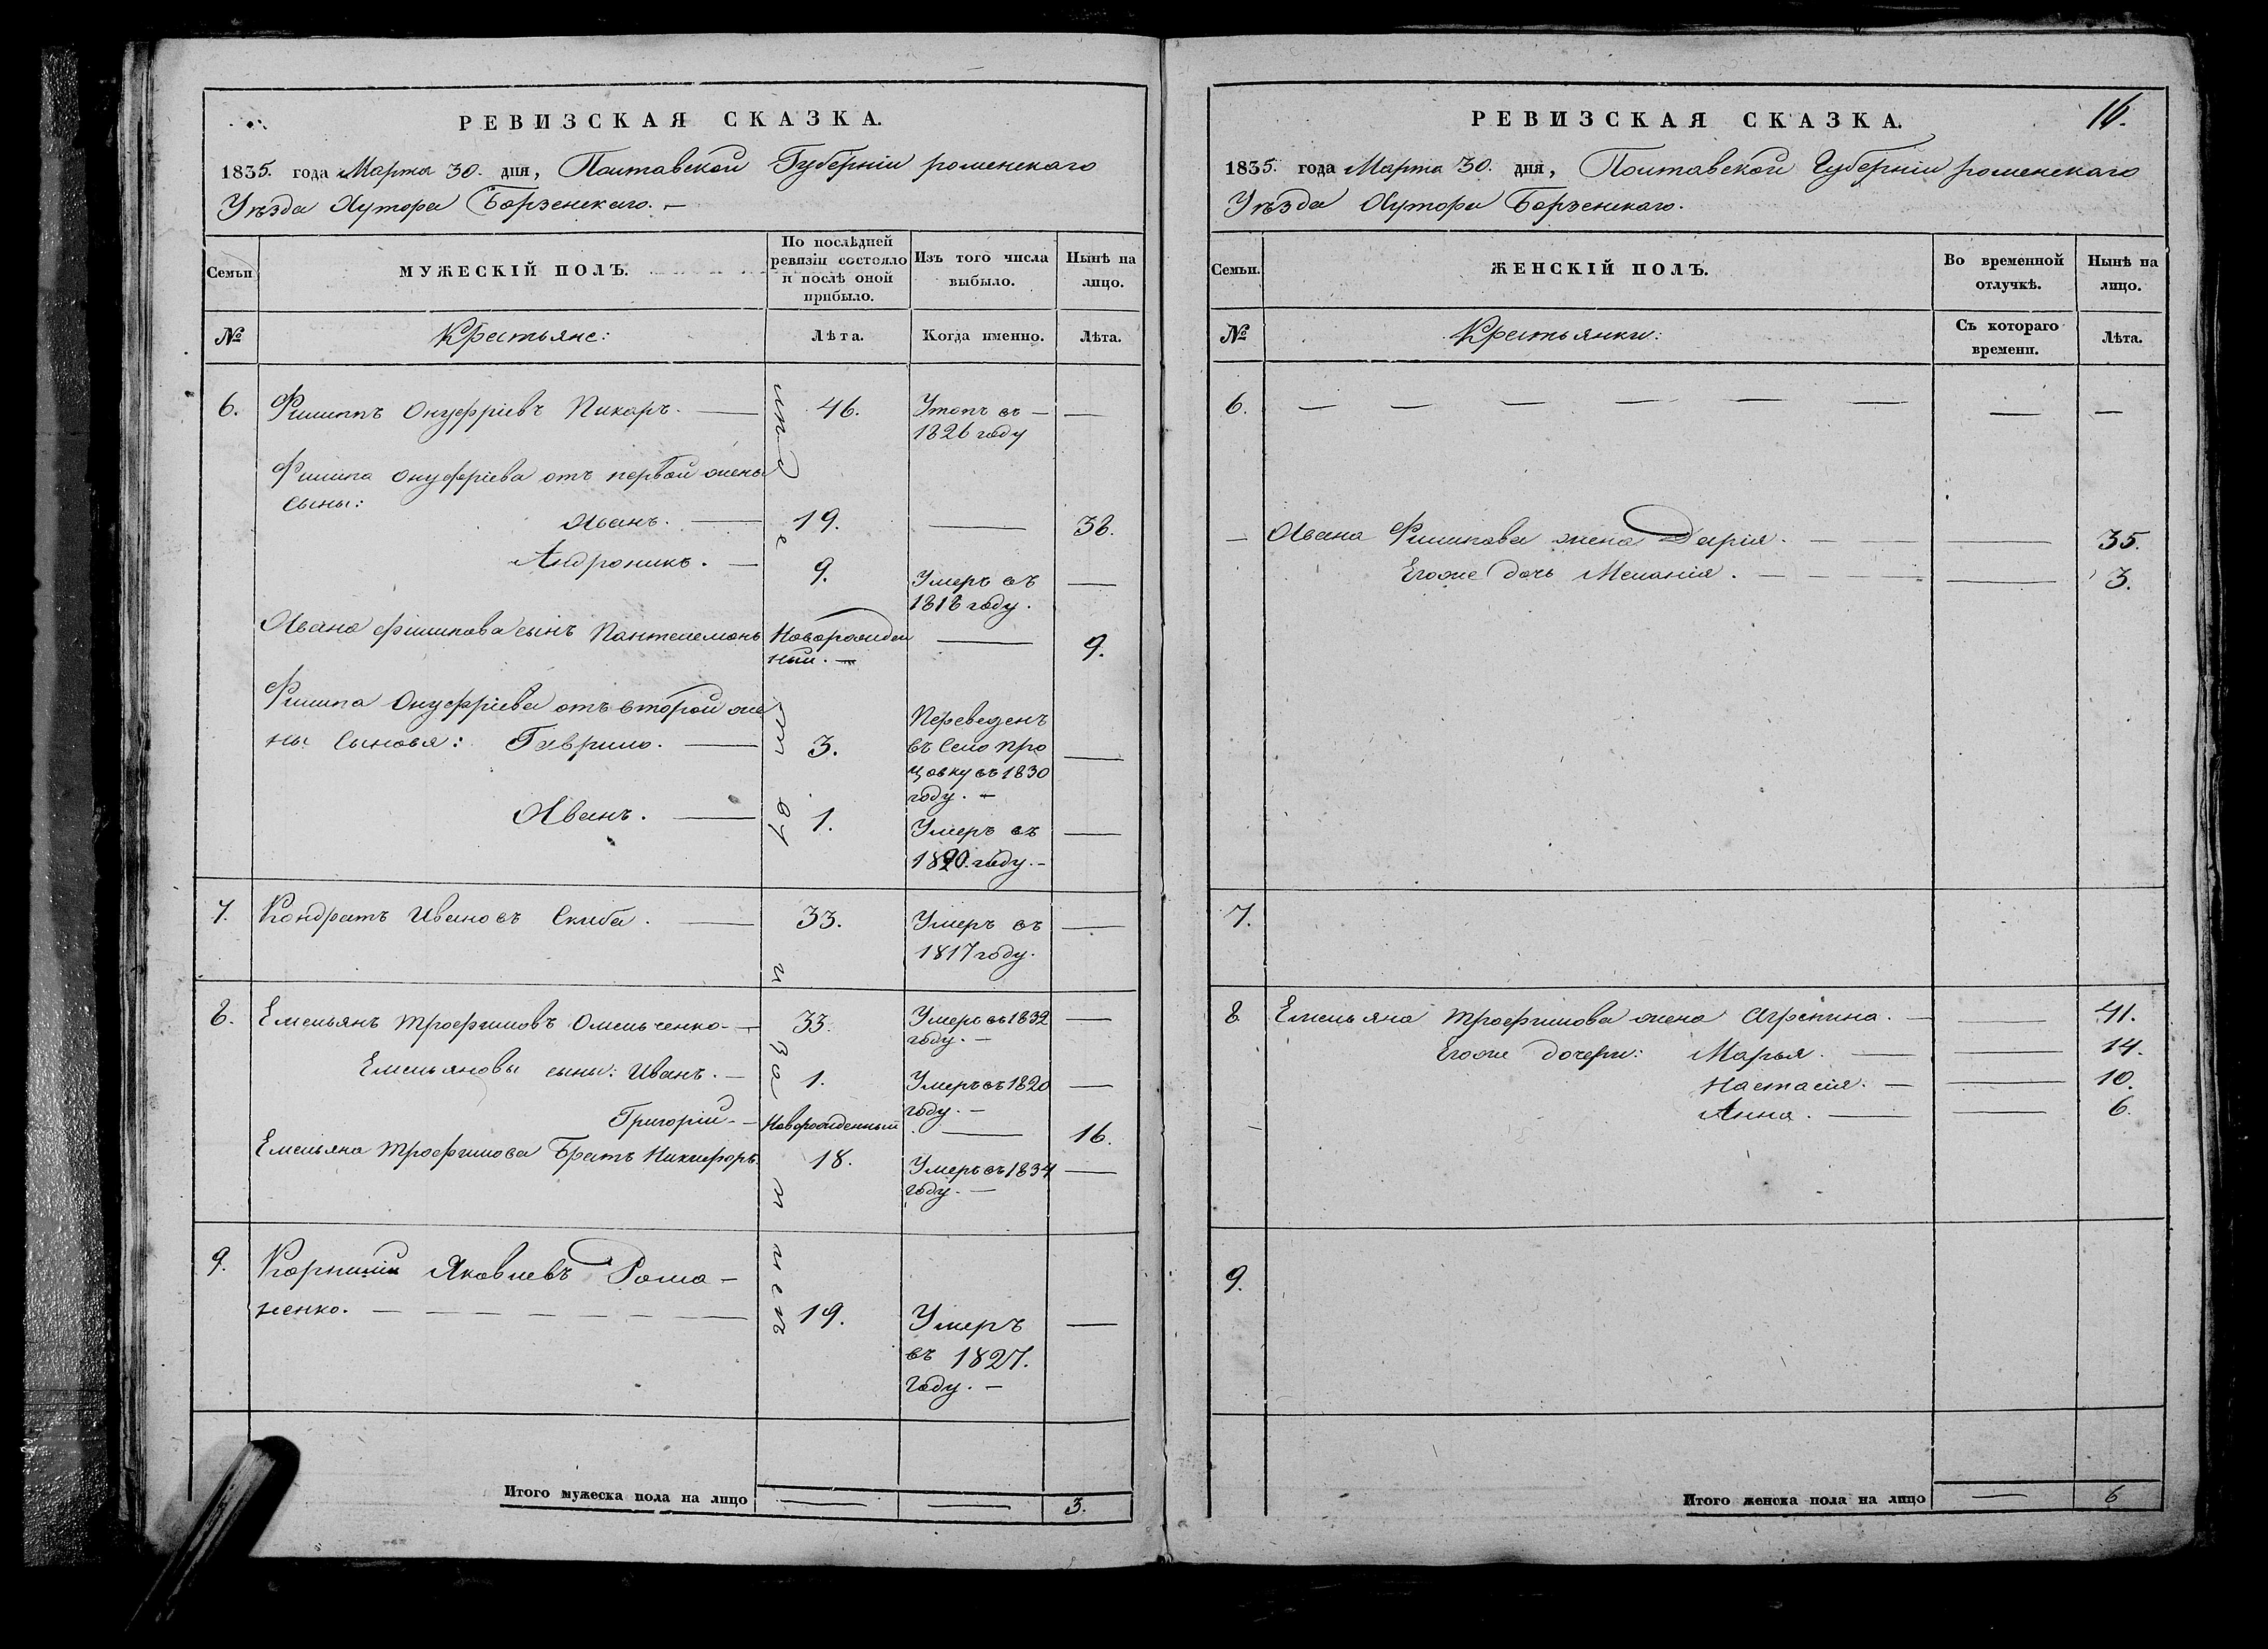 РЕВИЗСКАЯ СКАЗКА.
1835. года Марта 30. дня, Полтавской Губерніи роменскаго
Уѣзда Хутора Борзенскаго. —
Семьи
МУЖЕСКІЙ ПОЛЪ.
По послѣдней ревизіи состояло и послѣ оной прибыло.
Изъ того числа выбыло.
Нынѣ на лицо.
№
Крестьяне:
Лѣта.
Когда именно.
Лѣта.
6. Филиппъ Онуфріевъ Пикаръ. — 46. Утопъ въ — —
1826 году
Филипа Онуфріева отъ первой жены
сыны:
Иванъ. — 19. — 38.
Андроникъ. — 9. Умеръ въ —
1818 году.
Ивана филипова сынъ Пантелемонъ Новорожден — 9.
ный. —
Филипа Онуфріева отъ второй же Переведенъ
ны сыновья: Гаврило. — 3. въ Село Про —
цовку въ 1830
году. —
Иванъ. — 1. Умеръ въ —
1820. году. —
7. Кондратъ Ивановъ Скиба. — 33. Умеръ въ —
1817 году.
8. Емельянъ Трофимовъ Омельченко. — 33. Умеръ въ 1832 —
году. —
Емельяновы сыны: Иванъ. — 1. Умеръ въ 1820 —
году. —
Григорій — Новорожденный — 16.
Емельяна Трофимова Братъ Никифоръ. 18. Умеръ въ 1834 —
году. —
9. Корнилій Яковлевъ Рома —
ненко. — — — — — — 19. Умеръ —
въ 1827.
году. —
Итого мужеска пола на лицо — — 3.
16.
РЕВИЗСКАЯ СКАЗКА.
1835. года Марта 30. дня, Полтавской Губерніи роменскаго
Уѣзда Хутора Борзенскаго.
Семьи.
ЖЕНСКІЙ ПОЛЪ.
Во временной отлучкѣ.
Нынѣ на лицо.
№
Крестьянки:
Съ котораго времени.
Лѣта.
6. — — — — — — — —
— Ивана Филипова жена Дарія. — — — 35.
Егоже дочь Меланія. — — — — 3.
7.
8 Емельяна Трофимова жена Агрепина. — — 41.
Егоже дочери: Марья. — — 14.
Настасія. — — 10.
Анна. — — 6.
9.
Итого женска пола на лицо — 6